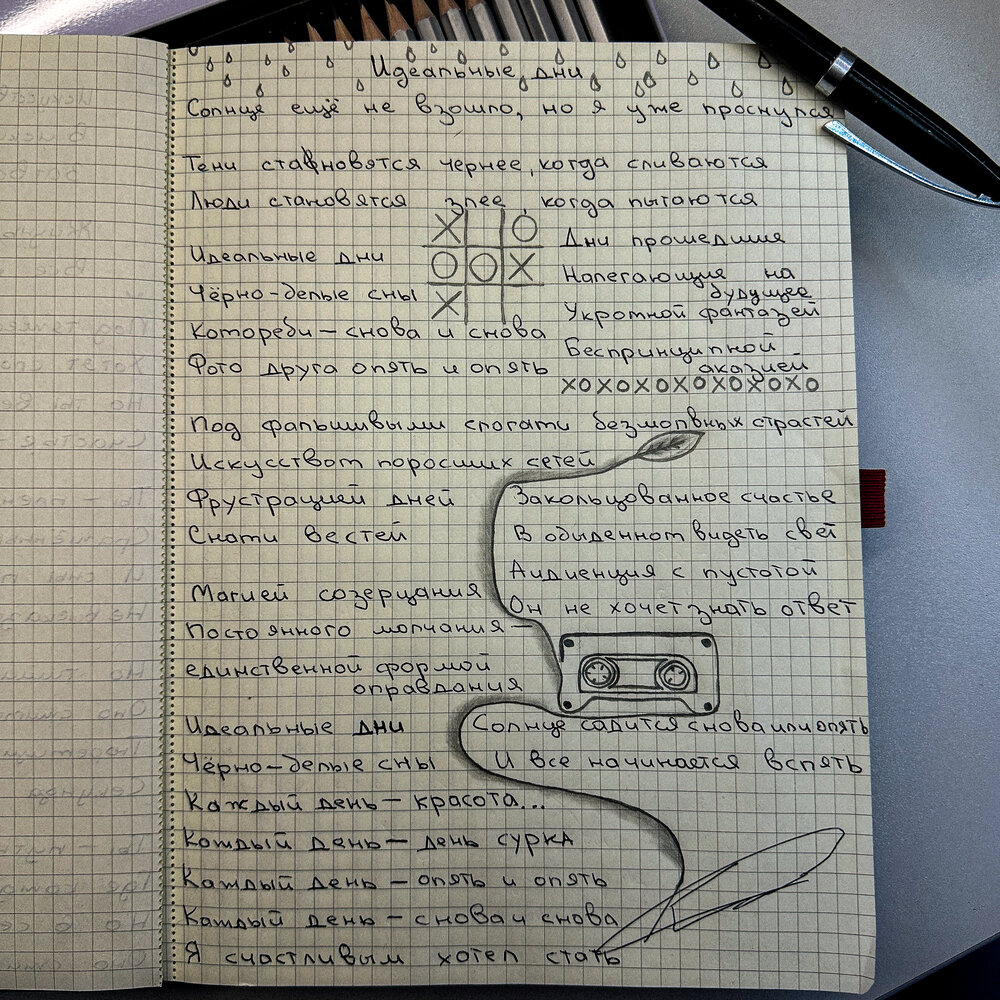 Идеальные дни
Солнце ещё не взошло, но я уже проснулся
Тени становятся чернее, когда сливаются
Люди становятся злее, когда пытаются
Идеальные дни
Чёрно-белые сны
Комореби – снова и снова
Фото друга опять и опять
X O
O O X
X
Дни прошедшие
Налегающие на
будущее
Укромной фантазей
Беспринципной
оказией
XOXOXOXOXOXOXO
Под фальшивыми слогати безмолвных страстей
Искусством поросших сетей
Фрустрацией дней
Снами вестей
Закольцованное счастье
В обыденном видеть свет
Аудиенция с пустотой
Он не хочет знать ответ
Магией созерцания
Постоянного молчания –
единственной формой
оправдания
Идеальные дни
Чёрно-белые сны
Солнце садится снова или опять
И все начинается вспять
Каждый день – красота...
Каждый день – день сурка
Каждый день – опять и опять
Каждый день – снова и снова
Я счастливым хотел стать